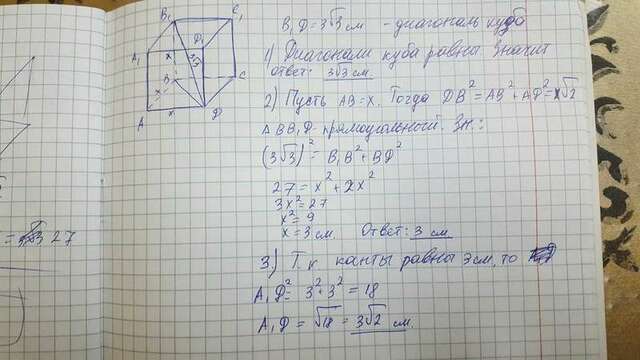 B₁ C₁
A₁ D₁
x 3√3
B C
x
A x D
= 3√3 27
B₁D = 3√3 см - диагональ куба
1) Диагонали куба равны. Значит
ответ: 3√3 см.
2) Пусть AB = x. Тогда DB² = AB² + AD² = x√2
△BB₁D - прямоугольной. Зн.:
(3√3)² = B₁B² + BD²
27 = x² + 2x²
3x² = 27
x² = 9
x = 3 см. Ответ: 3 см
3) Т.к канты равны 3 см, то
A₁D² = 3² + 3² = 18
A₁D = √18 = 3√2 см.